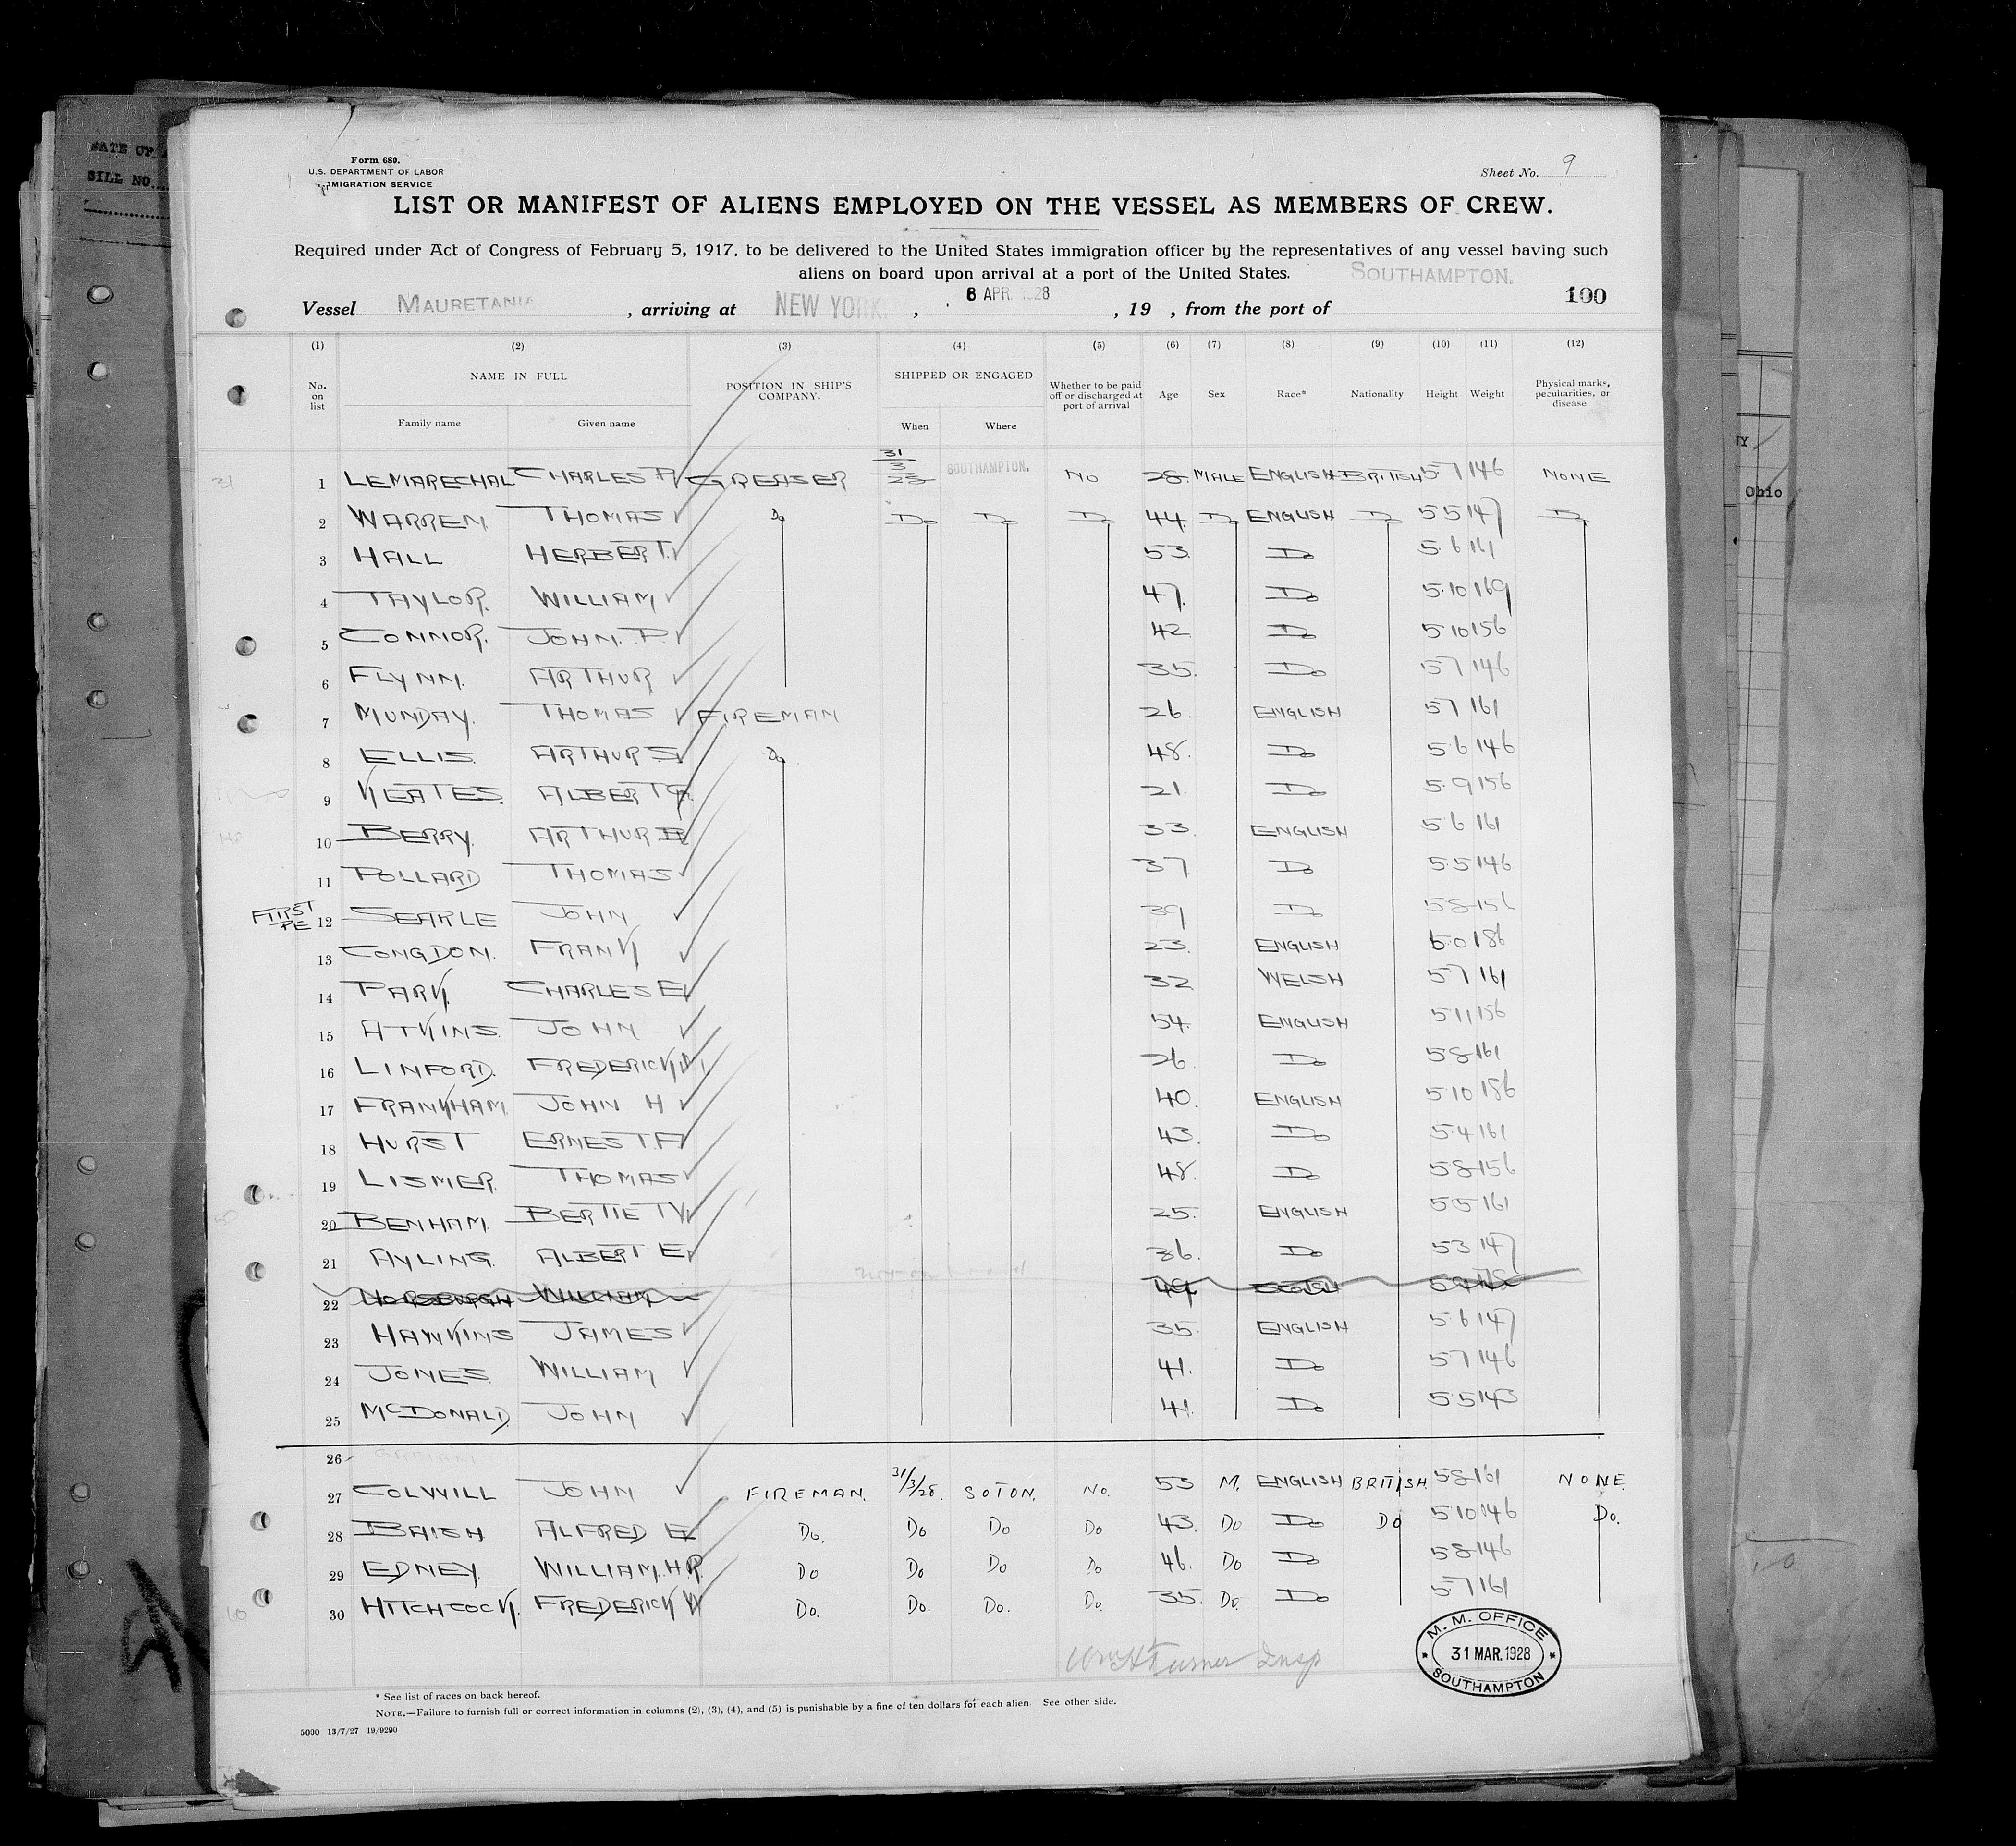 DATE OF
BILL NO.
Form 680.
U.S. DEPARTMENT OF LABOR
IMMIGRATION SERVICE
Sheet No. 9
LIST OR MANIFEST OF ALIENS EMPLOYED ON THE VESSEL AS MEMBERS OF CREW.
Required under Act of Congress of February 5, 1917, to be delivered to the United States immigration officer by the representatives of any vessel having such
aliens on board upon arrival at a port of the United States.
SOUTHAMPTON.
Vessel MAURETANIA, arriving at NEW YORK, 6 APR. 1928, 19 , from the port of 100
(1) (2) (3) (4) (5) (6) (7) (8) (9) (10) (11) (12)
No. on list NAME IN FULL POSITION IN SHIP'S COMPANY. SHIPPED OR ENGAGED Whether to be paid off or discharged at port of arrival Age Sex Race* Nationality Height Weight Physical marks, peculiarities, or disease
Family name Given name When Where
31 1 LEMARECHAL CHARLES P. GREASER 31/3/28 SOUTHAMPTON. NO 28. MALE ENGLISH BRITISH 5-7 146 NONE
2 WARREN THOMAS Do Do Do Do 44. Do ENGLISH Do 5 5 147 Do
3 HALL HERBERT. 53. Do 5.6 161
4 TAYLOR. WILLIAM 47. Do 5.10 169
5 CONNOR. JOHN. P. 42 Do 5 10 156
6 FLYNN. ARTHUR 35. Do 5 7 146
7 MUNDAY. THOMAS FIREMAN 26. ENGLISH 5 7 161
8 ELLIS. ARTHUR S. Do 48. Do 5.6 146
9 KEATES. ALBERT G. 21. Do 5.9 156
10 BERRY. ARTHUR B 33. ENGLISH 5 6 161
11 POLLARD THOMAS 37 Do 5.5 146
FIRST
PE 12 SEARLE JOHN 39 Do 5 8 156
13 CONGDON. FRANK 23. ENGLISH 6.0 186
14 PARK. CHARLES E 32 WELSH 5 7 161
15 ATKINS. JOHN 54. ENGLISH 5 11 156
16 LINFORD. FREDERICK 26. Do 5 8 161
17 FRANKHAM. JOHN H 40. ENGLISH 5 10 186
18 HURST ERNEST. F 43. Do 5.4 161
19 LISMER. THOMAS 48. Do 5 8 156
20 BENHAM. BERTIE TW 25. ENGLISH 5 5 161
21 AYLING. ALBERT E. 36. Do 5 3 147
22 HORSBURGH WILLIAM 49 SCOTCH
23 HAWKINS JAMES 35. ENGLISH 5 6 147
24 JONES. WILLIAM 41. Do 5 7 146
25 McDONALD. JOHN 41. Do 5 5 143
26
27 COLWILL JOHN FIREMAN. 31/3/28. SOTON. No. 53 M. ENGLISH BRITISH. 5 8 161 NONE.
28 BAISH ALFRED E Do. Do Do Do 43. Do Do Do 5 10 146 Do.
29 EDNEY. WILLIAM. H.R. Do Do Do Do 46. Do Do 5 8 146
30 HITCHCOCK. FREDERICK W Do. Do. Do. Do. 35. Do. Do 5 7 161
Wm H Turner Insp
M. M. OFFICE
31 MAR. 1928
SOUTHAMPTON
* See list of races on back hereof.
NOTE.—Failure to furnish full or correct information in columns (2), (3), (4), and (5) is punishable by a fine of ten dollars for each alien. See other side.
5000 13/7/27 19/9290
Ohio